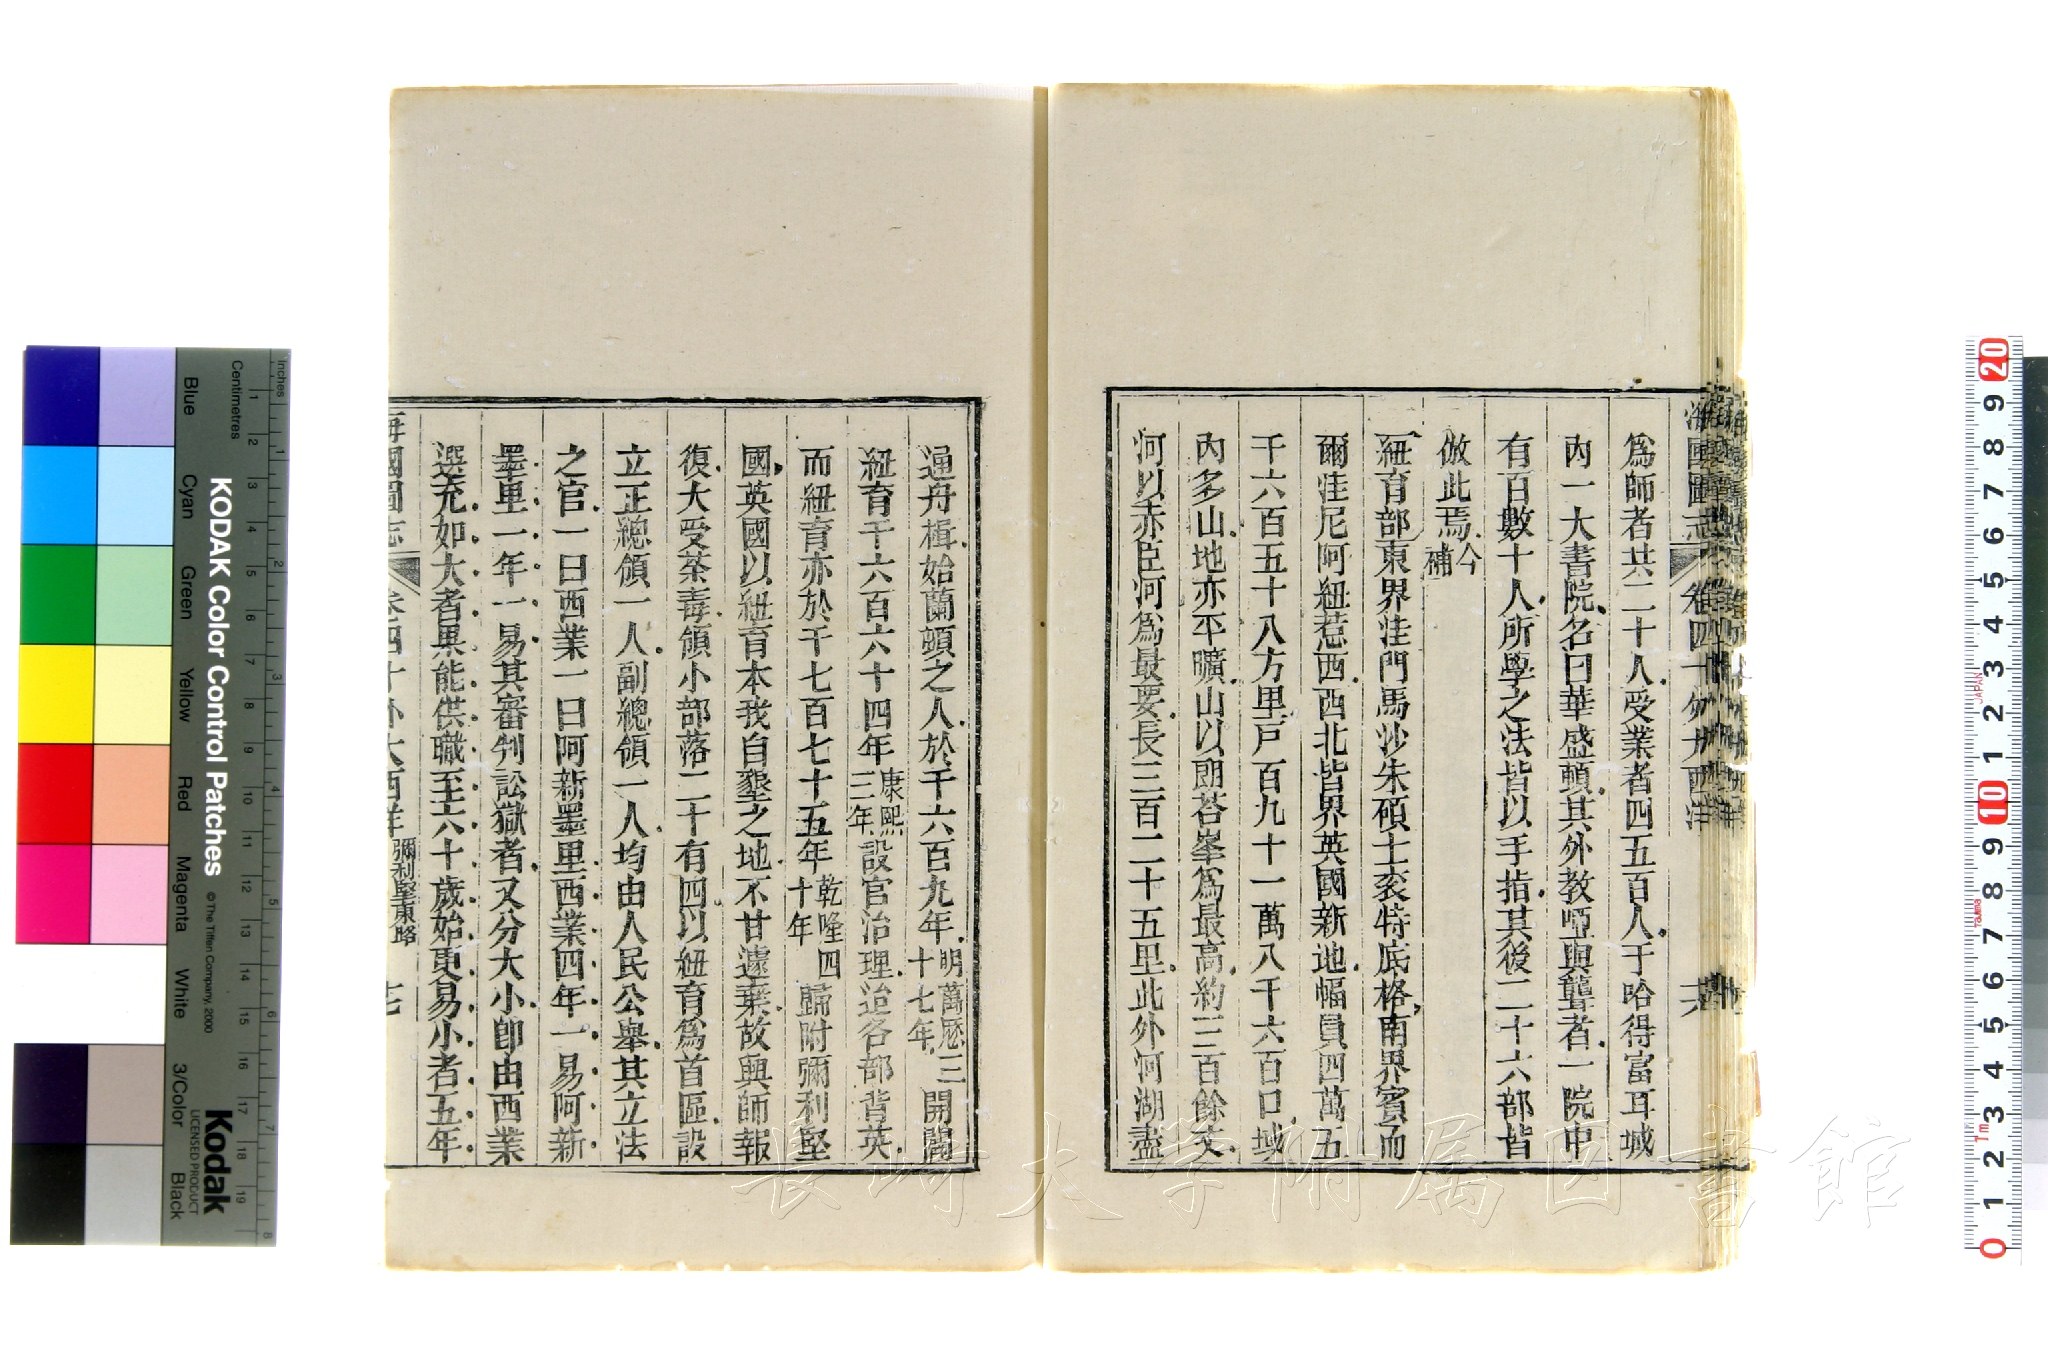 海國圖志 卷四十 外大西洋 六
爲師者共二十人受業者四五百人于哈得富耳城
內一大書院名曰華盛頓其外敎啞與聾者一院中
有百數十人所學之法皆以手指其後二十六部皆
倣此焉今補
紐育部東界洼門馬沙朱碩士衮特底格南界賓西
爾洼尼阿紐惹西西北皆界英國新地幅員四萬五
千六百五十八方里戸百九十一萬八千六百口域
內多山地亦平曠山以朗荅峯爲最高約三百餘丈
河以赤臣河爲最要長三百二十五里此外河湖盡
通舟楫始蘭頓之人於千六百九年明萬曆三十七年開闢
紐育千六百六十四年康熙三年設官治理迨各部背英
而紐育亦於千七百七十五年乾隆四十年歸附彌利堅
國英國以紐育本我自墾之地不甘遽棄故興師報
復大受荼毒領小部落二十有四以紐育爲首區設
立正總領一人副總領一人均由人民公舉其立法
之官一曰西業一曰阿新墨里西業四年一易阿新
墨里一年一易其審判訟獄者又分大小卽由西業
選充如大者果能供職至六十歲始更易小者五年
海國圖志 卷四十 外大西洋 彌利堅東路 十七
KODAK Color Control Patches
© The Tiffen Company, 2000
Kodak
LICENSED PRODUCT
Inches
Centimetres
Blue
Cyan
Green
Yellow
Red
Magenta
White
3/Color
Black
長崎大学附属図書館
JAPAN
Tajima
Tm